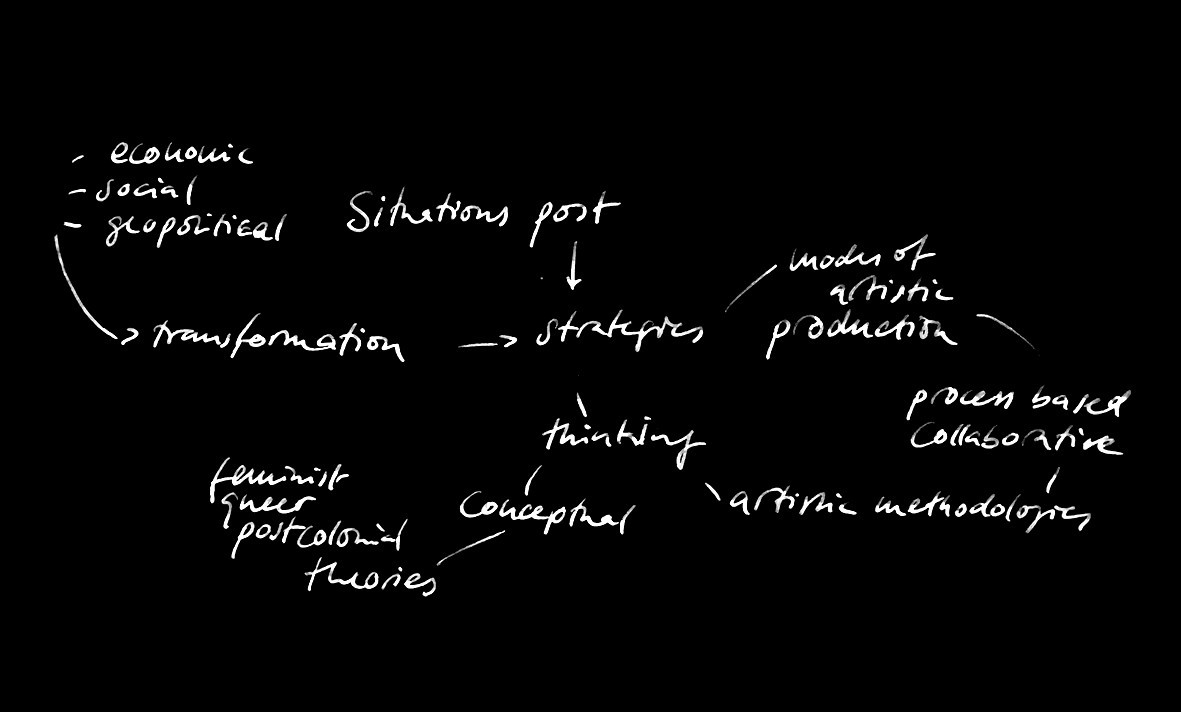 - economic
- social
- geopolitical
Situations post
transformation
strategies
modes of
artistic
production
process based
collaborative
thinking
artistic methodologies
conceptual
feminist
queer
postcolonial
theories